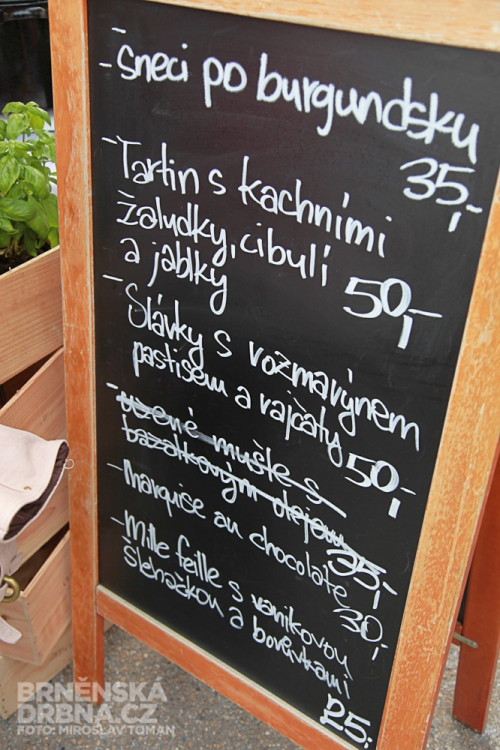 - šneci po burgundsku
35,-
- Tartin s kachními
žaludky, cibulí
a jablky 50,-
- Slávky s rozmarýnem
pastisem a rajčaty 50,-
- Uzené mušle s
bazalkovým olejem 35,-
- Marquise au chocolate 30,-
- Mille feille s vanikovou
šlehačkou a borůvkami
25,-
BRNĚNSKÁ
DRBNA.CZ
FOTO: MIROSLAV TOMAN